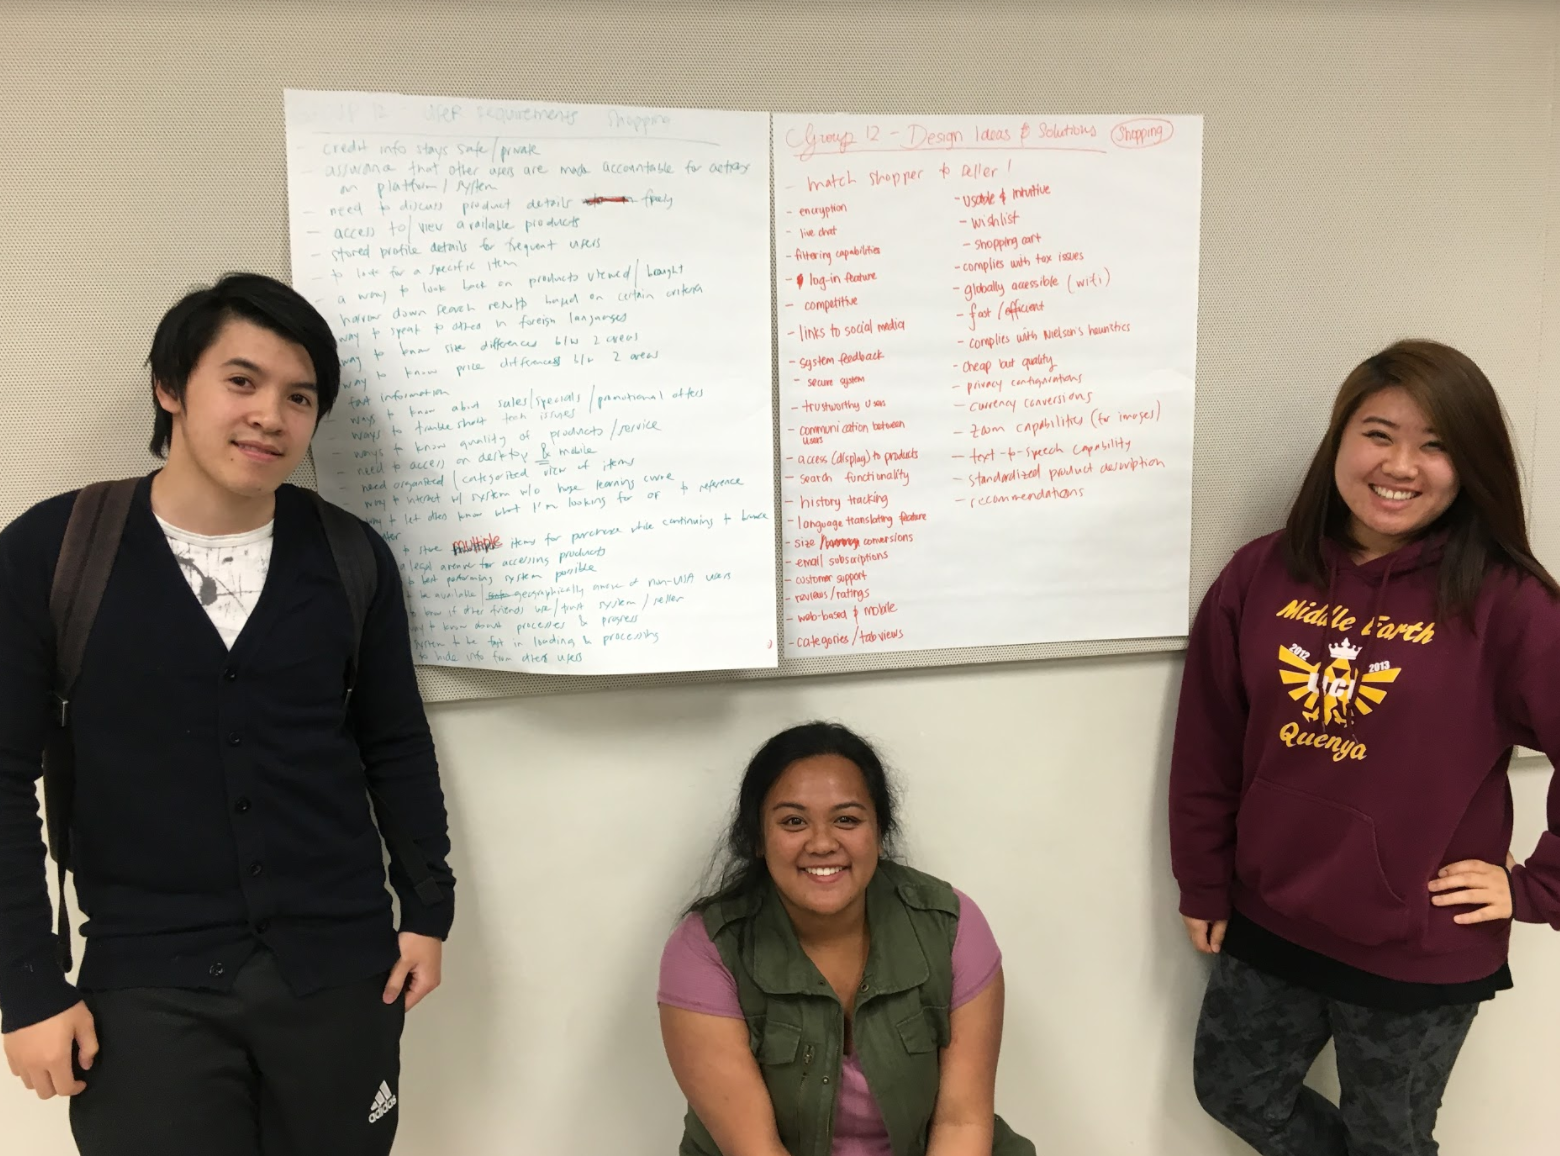 12 - User Requirements Shopping
- credit info stays safe/private
- assurance that other users are made accountable for activity
on platform/system
- need to discuss product details freely
- access to/view available products
- stored profile details for frequent users
- to look for a specific item
- a way to look back on products viewed/bought
narrow down search results based on certain criteria
way to speak to others in foreign languages
way to know size differences b/w 2 areas
way to know price differences b/w 2 areas
fast information
- ways to know about sales/specials/promotional offers
- ways to troubleshoot tech issues
- ways to know quality of products/service
- need to access on desktop & mobile
- need organized/categorized view of items
way to interact w/ system w/o huge learning curve
way to let others know what I'm looking for or to reference
to store multiple items for purchase while continuing to browse
a legal avenue for accessing products
to best performing system possible
be available/geographically aware of non-USA users
to know if other friends use/trust system/seller
to know about processes & progress
system to be fast in loading & processing
to hide info from other users
Group 12 - Design Ideas & Solutions Shopping
- match shopper to seller!
- encryption
- live chat
- filtering capabilities
- log-in feature
- competitive
- links to social media
- system feedback
- secure system
- trustworthy users
- communication between
users
- access (display) to products
- search functionality
- history tracking
- language translating feature
- size / conversions
- email subscriptions
- customer support
- reviews/ratings
- web-based & mobile
- categories/tab views
- usable & intuitive
- wishlist
- shopping cart
- complies with tax issues
- globally accessible (wifi)
- fast/efficient
- complies with Nielson's heuristics
- cheap but quality
- privacy configurations
- currency conversions
- zoom capabilities (for images)
- text-to-speech capability
- standardized product description
- recommendations
Middle Earth
2012 UCI 2013
Quenya
adidas